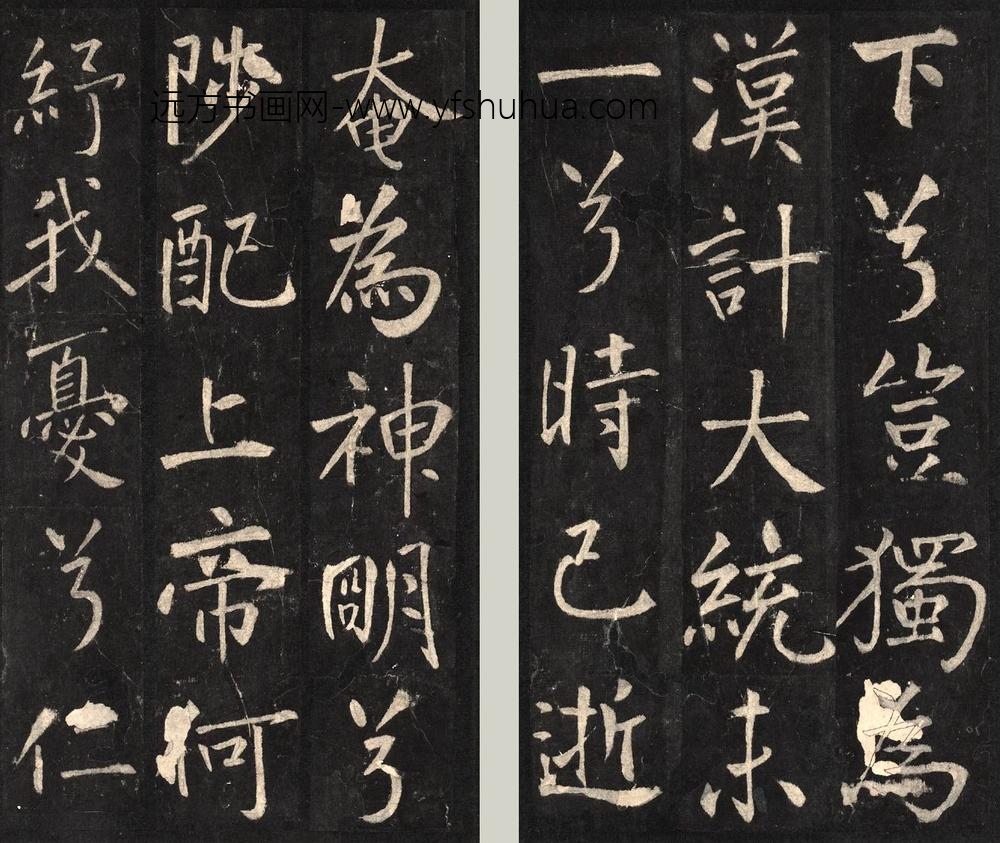 下兮豈獨為
漢計大統未
一兮時已逝
奄為神明兮
陟配上帝何
紓我憂兮仁
远方书画网-www.yfshuhua.com